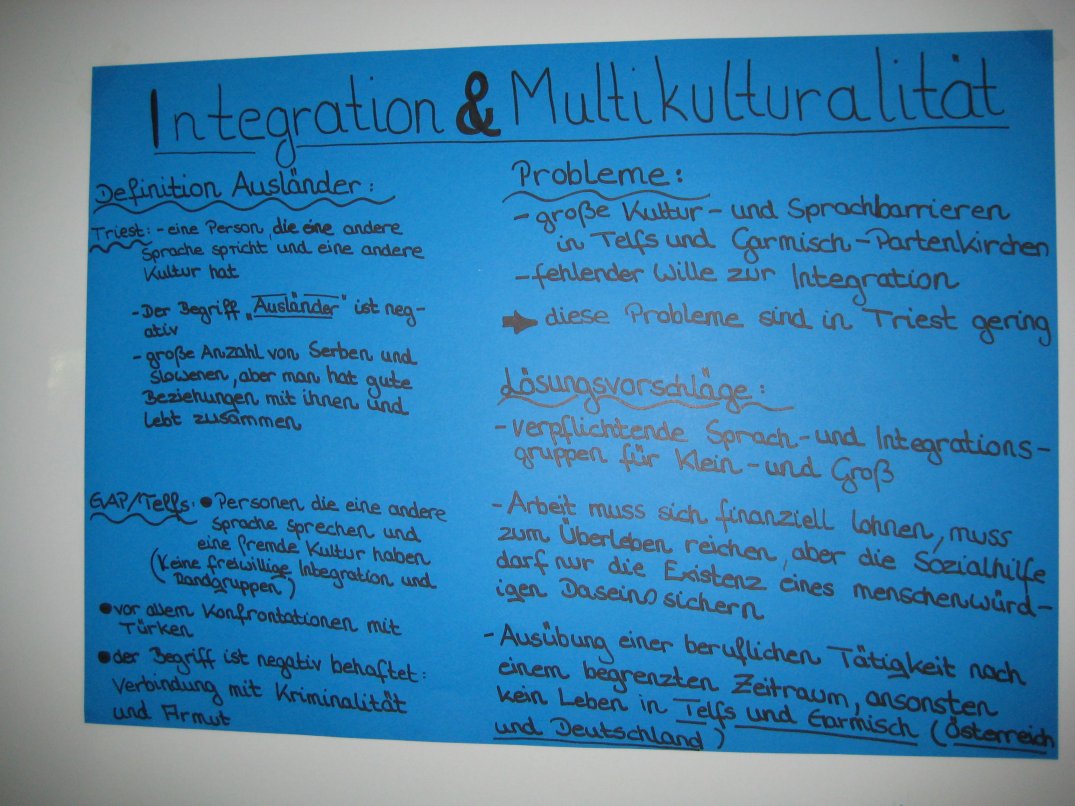 Integration & Multikulturalität
Definition Ausländer:
Triest: - eine Person, die eine andere
Sprache spricht und eine andere
Kultur hat
- Der Begriff „Ausländer" ist neg-
ativ
- große Anzahl von Serben und
Slowenen, aber man hat gute
Beziehungen mit ihnen und
lebt zusammen
GAP/Telfs: • Personen die eine andere
Sprache sprechen und
eine fremde Kultur haben
(Keine freiwillige Integration und
Randgruppen)
• vor allem Konfrontationen mit
Türken
• der Begriff ist negativ behaftet:
Verbindung mit Kriminalität
und Armut
Probleme:
- große Kultur- und Sprachbarrieren
in Telfs und Garmisch-Partenkirchen
- fehlender Wille zur Integration
➡ diese Probleme sind in Triest gering
Lösungsvorschläge:
- verpflichtende Sprach- und Integrations-
gruppen für Klein- und Groß
- Arbeit muss sich finanziell lohnen, muss
zum Überleben reichen, aber die Sozialhilfe
darf nur die Existenz eines menschenwürd-
igen Daseins sichern
- Ausübung einer beruflichen Tätigkeit nach
einem begrenzten Zeitraum, ansonsten
kein Leben in Telfs und Garmisch (Österreich
und Deutschland)